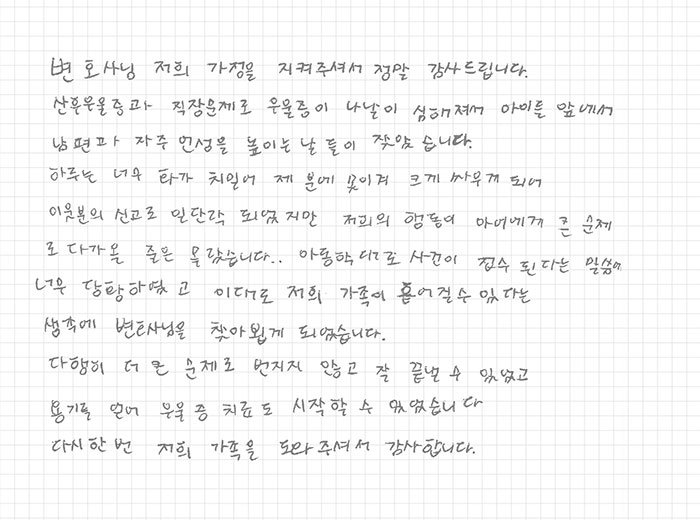 변호사님 저희 가정을 지켜주셔서 정말 감사드립니다.
산후우울증과 직장문제로 우울증이 나날이 심해져서 아이들 앞에서
남편과 자주 언성을 높이는 날들이 잦았습니다.
하루는 너무 화가 치밀어 제 분에 못이겨 크게 싸우게 되어
이웃분의 신고로 일단락 되었지만 저희의 행동이 아이에게 큰 문제
로 다가올 줄은 몰랐습니다.. 아동학대로 사건이 접수 된다는 말씀에
너무 당황하였고 이대로 저희 가족이 흩어질수 있다는
생각에 변호사님을 찾아뵙게 되었습니다.
다행히 더 큰 문제로 번지지 않고 잘 끝낼 수 있었고
용기를 얻어 우울증 치료도 시작할 수 있었습니다
다시한번 저희 가족을 도와주셔서 감사합니다.